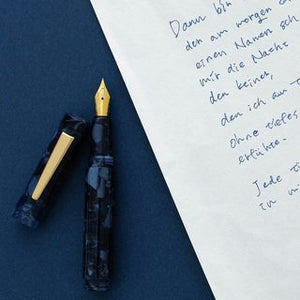 Dann bin
den am morgen
einen Namen
mir die Nacht
den keiner,
den ich am
ohne tiefes
erfühte.
Jede
in